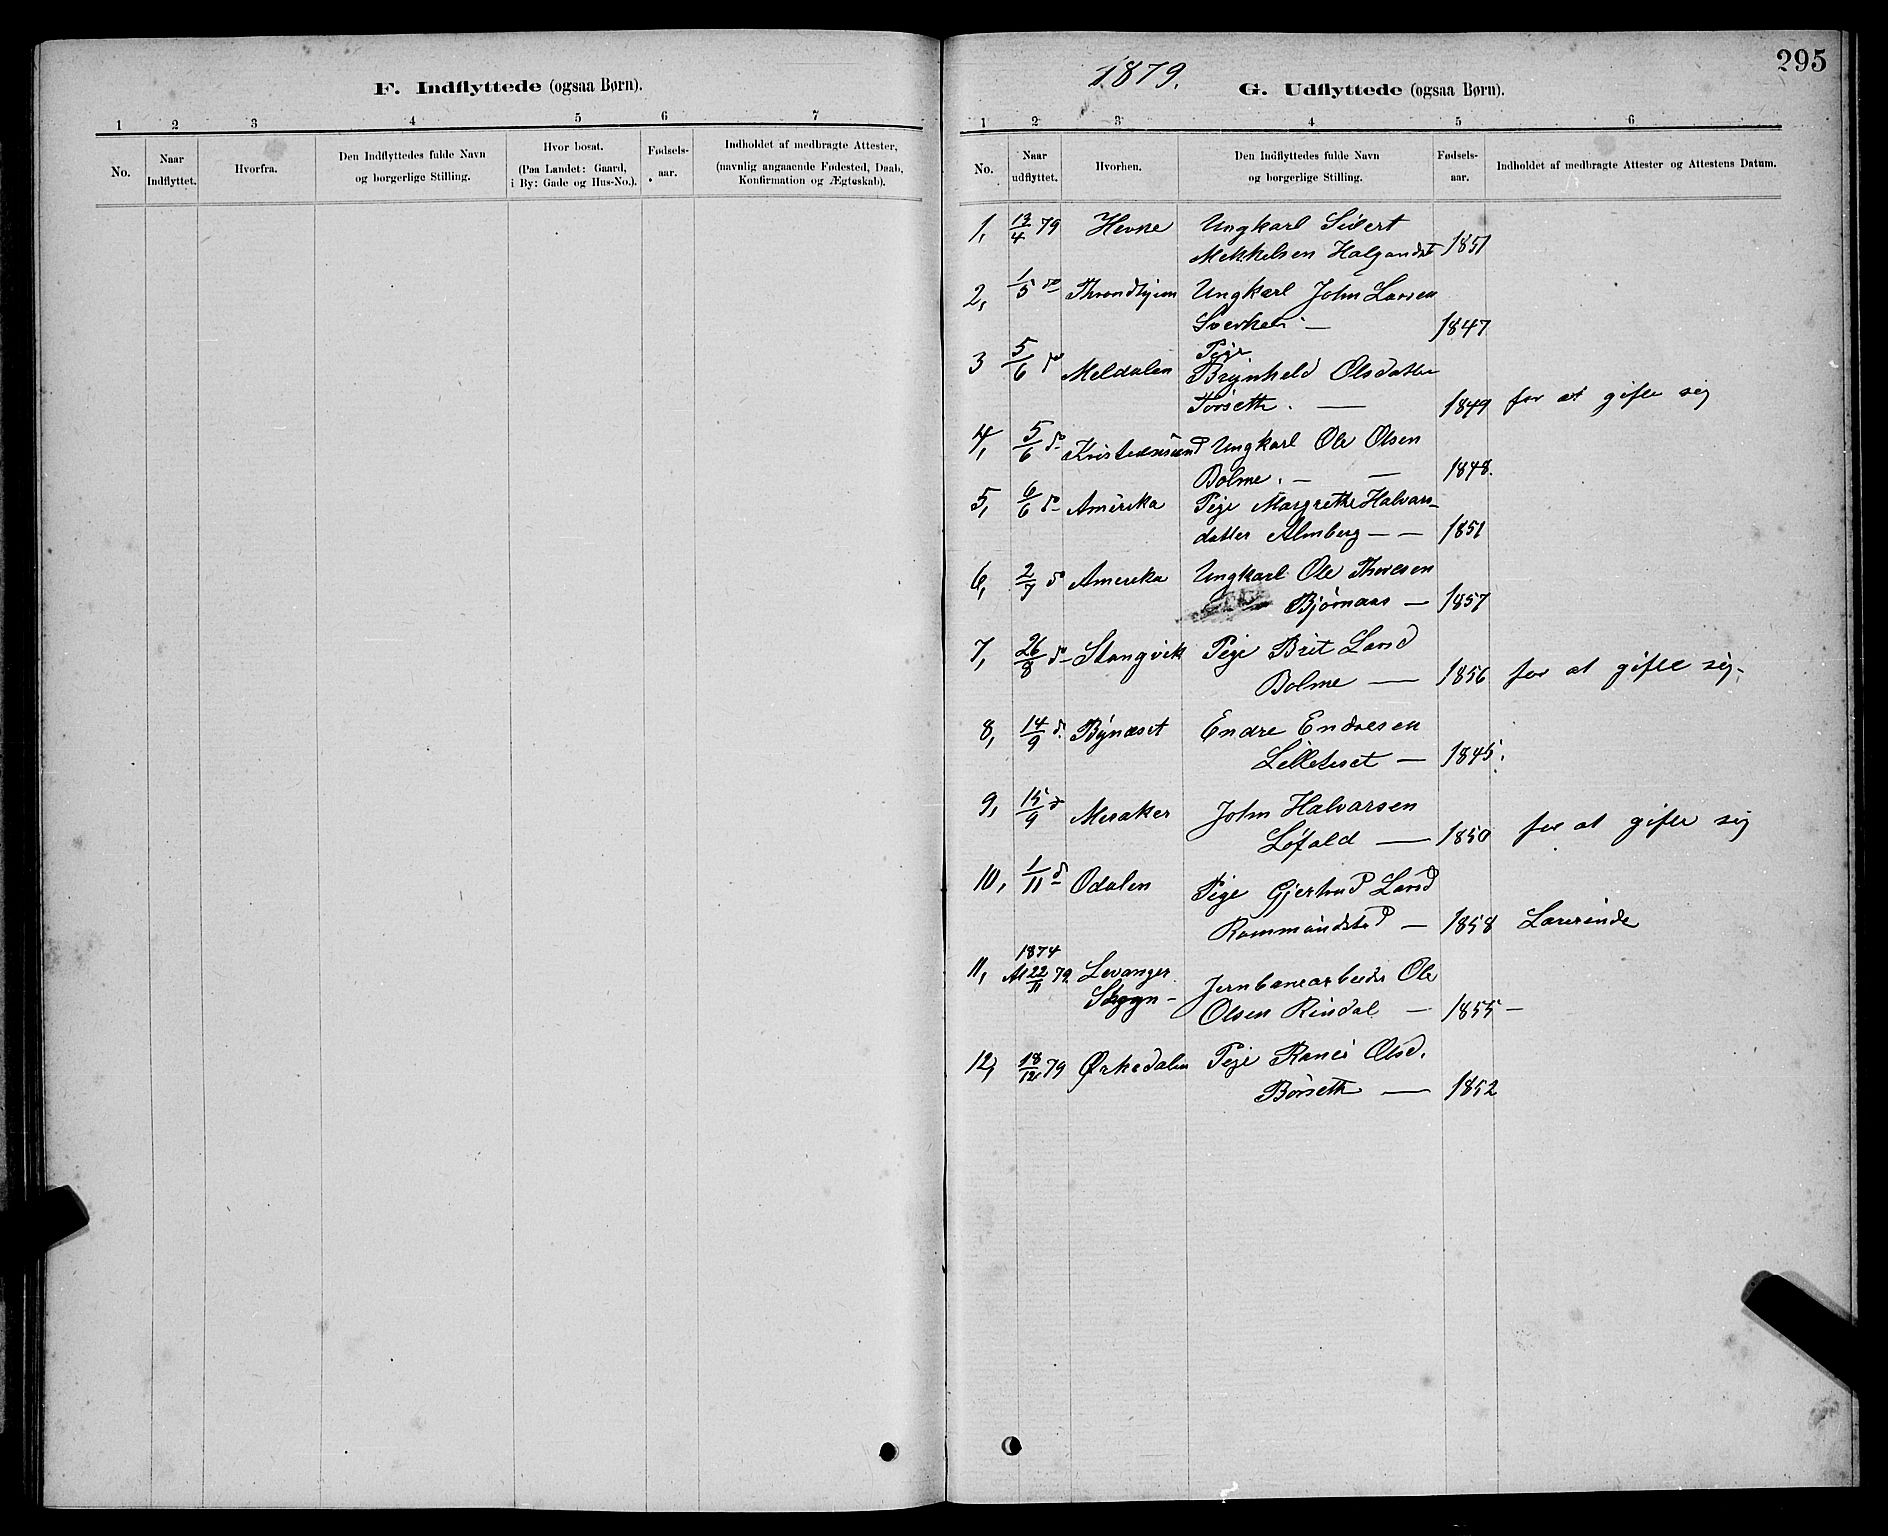 F. Indflyttede (ogsaa Børn).
1 2 3 4 5 6 7
No.
Naar Indflyttet.
Hvorfra.
Den Indflyttedes fulde Navn og borgerlige Stilling.
Hvor bosat. (Paa Landet: Gaard, i By: Gade og Hus-No.).
Fødsels-aar.
Indholdet af medbragte Attester, (navnlig angaaende Fødested, Daab, Konfirmation og Ægteskab).
295
1879.
G. Udflyttede (ogsaa Børn).
1 2 3 4 5 6
No.
Naar udflyttet.
Hvorhen.
Den Indflyttedes fulde Navn og borgerlige Stilling.
Fødsels-aar.
Indholdet af medbragte Attester og Attestens Datum.
1, 13/4 79 Hevne Ungkarl Sivert
Mekkelsen Halgandset 1851
2, 1/5 do Throndhjem Ungkarl John Larsen
— 1847
3 5/6 do Meldalen Pige
Brynheld Olsdatter
Torseth. — 1849 for at gifte sig
4, 5/6 do Kristiansund Ungkarl Ole Olsen
Bolme. — — 1848.
5, 6/6 do Amerika Pige Margrethe Halvars-
datter Almberg — — 1851
6, 2/7 do Amerika Ungkarl Ole Thoresen
Bjørnaas — 1857
7, 26/8 do Stangvik Pige Brit Larsd
Bolme — 1856 for at gifte sig.
8, 14/9 d. Bynæset Endre Endresen
Lilleteset — 1845.
9, 15/9 d Meraker John Halvarsen
Løfald — 1850 for at gifte sig
10, 1/11 d Odalen Pige Gjertrud Larsd
Rommundstad — 1858 Lærerinde
1874
11, Al 22/11 79 Levanger Jernbanearbeider Ole
Skogn- Olsen Rindal — 1855 —
12, 18/12 79 Ørkedalen Pige Ranei Olsd.
Børseth — 1852